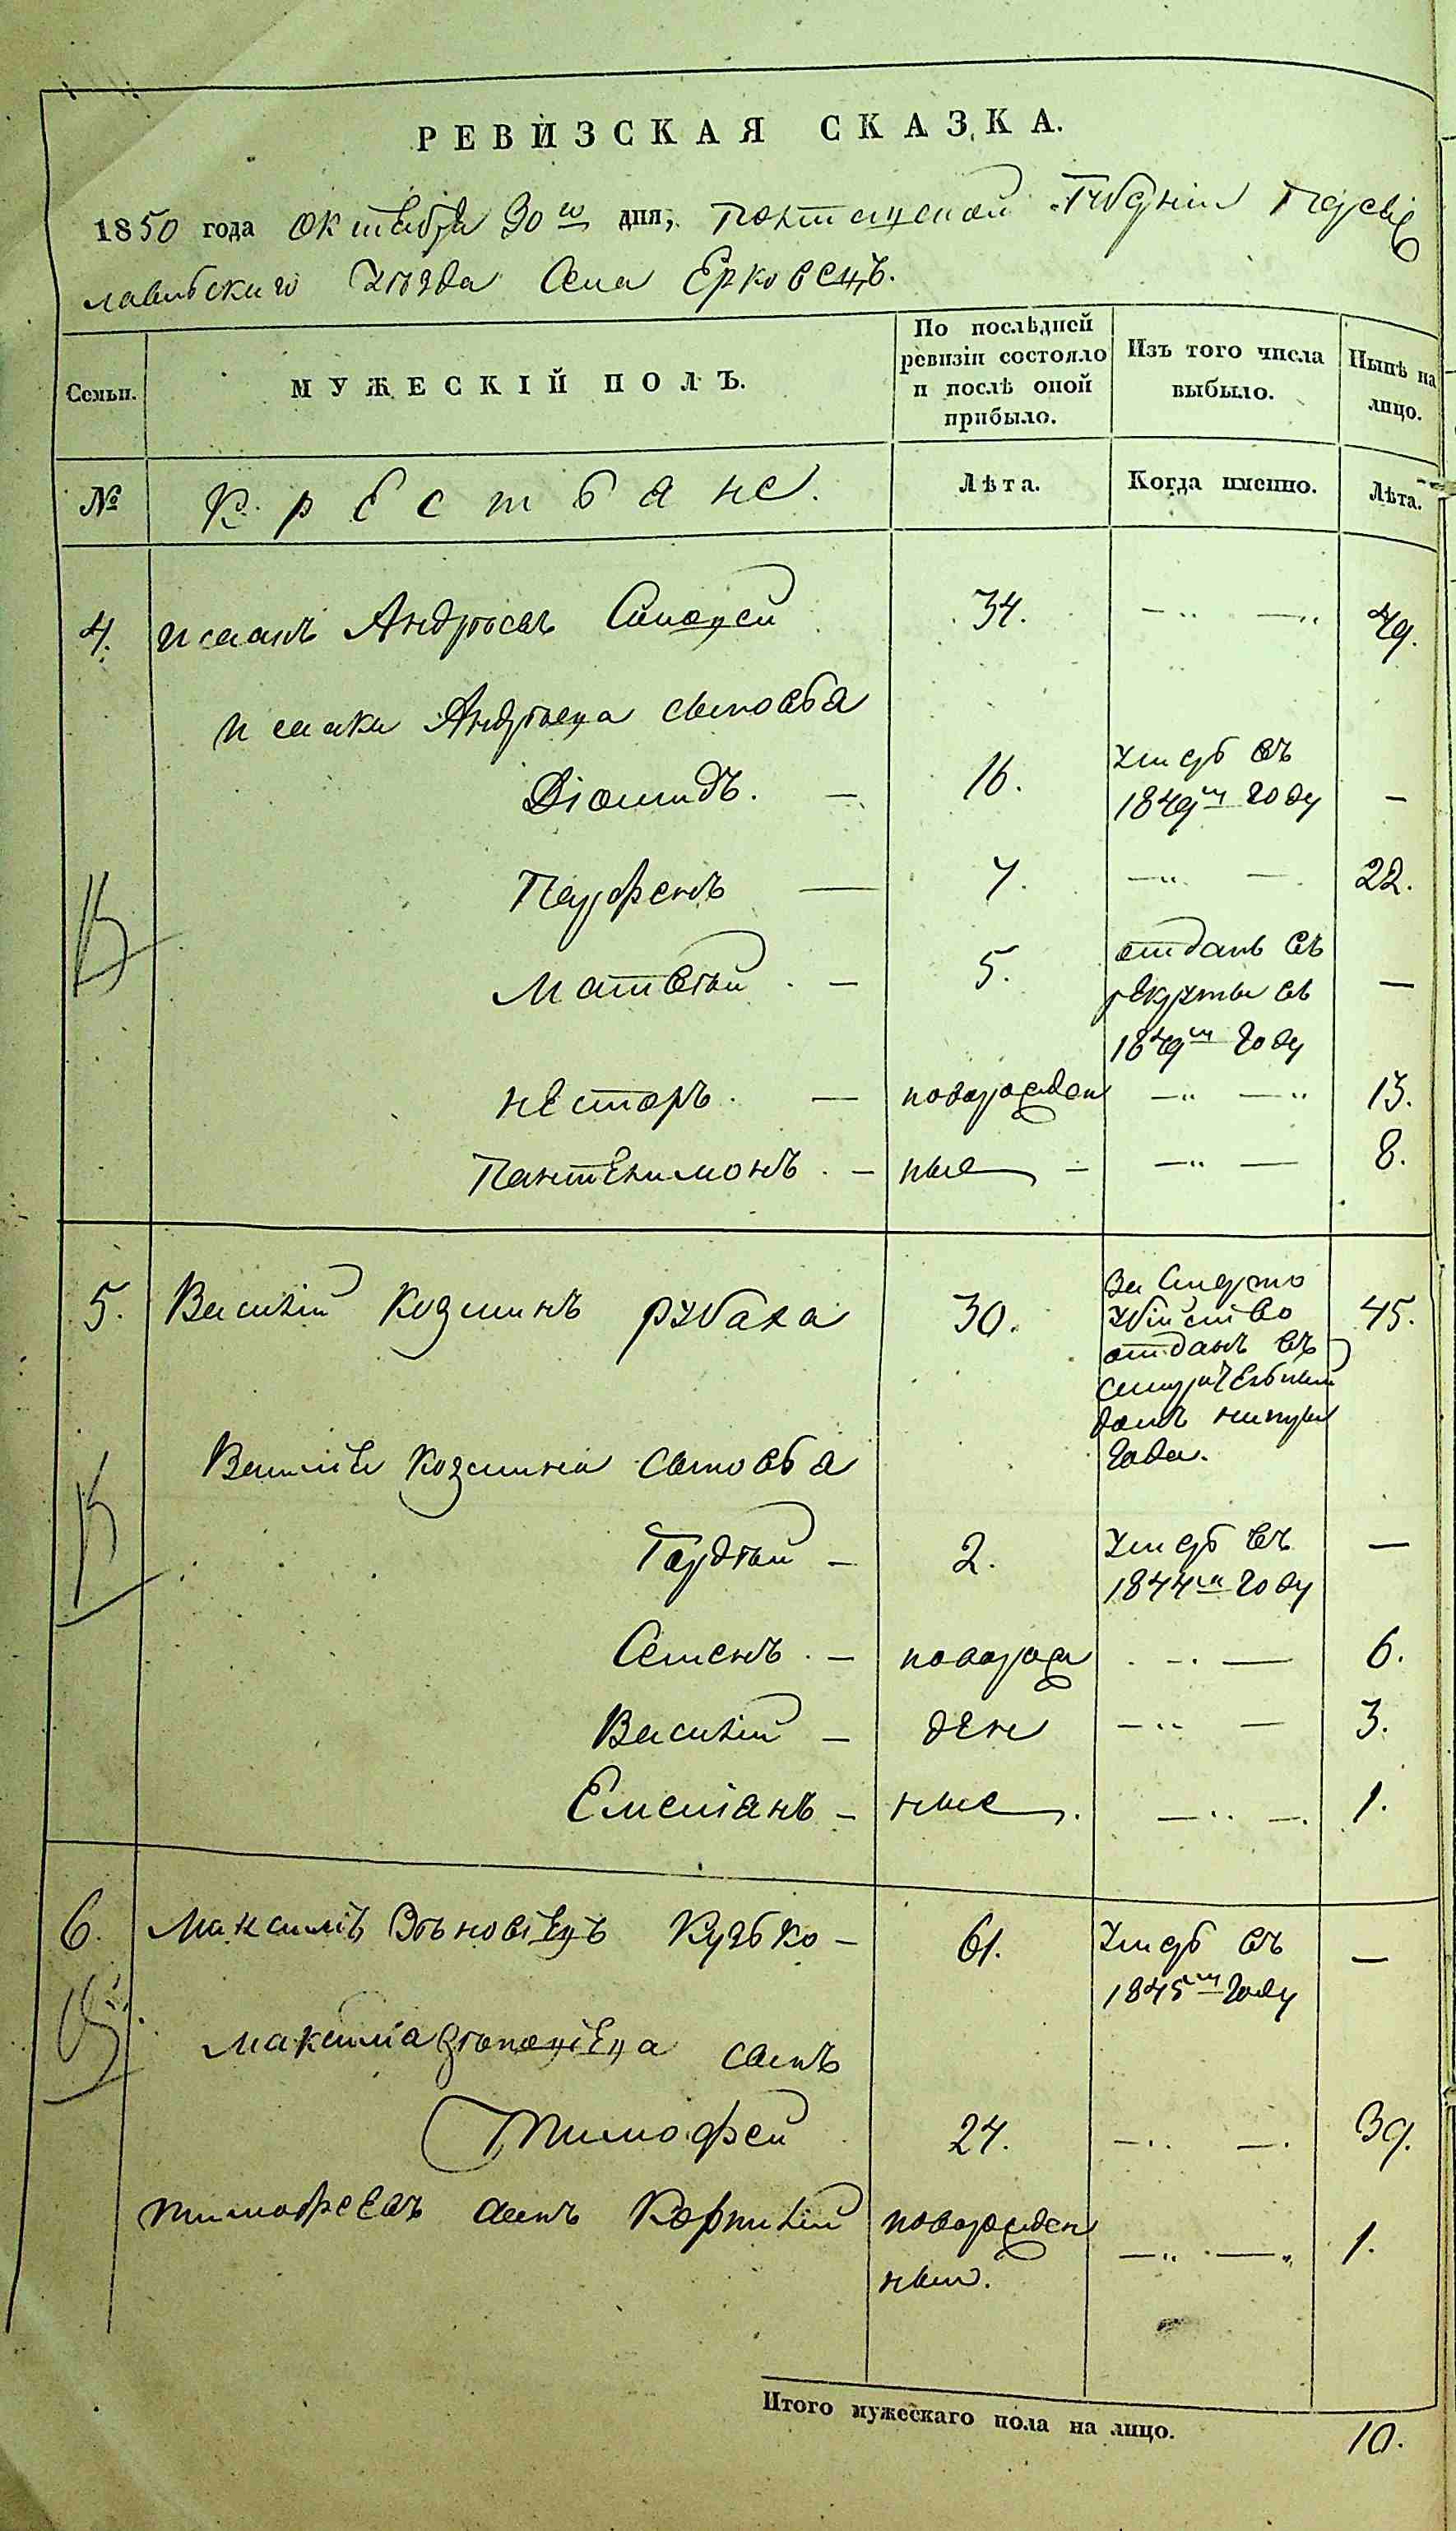 РЕВИЗСКАЯ СКАЗКА.
1850 года октября 30го дня, Полтавской Губернии Переяс
лавского Уезда Села Ерковецъ.
Семьи.
МУЖЕСКІЙ ПОЛЪ.
По послѣдней ревизіи состояло и послѣ оной прибыло.
Изъ того числа выбыло.
Нынѣ на лицо.
№
Крестьяне.
Лѣта.
Когда именно.
Лѣта.
4. Исаакъ Андрѣевъ 34. 49.
Исаака Андрѣева сыновья
Діомидъ. — 16. умеръ въ 1849м году —
Парфенъ — 7. 22.
Матвѣй — 5. отданъ въ рекруты въ 1849м году —
Несторъ. — новорожден 13.
Пантелимонъ. — ные — 8.
5. Василій Козминъ Рубаха 30. За смерто убійство отданъ въ домъ года. 45.
Василія Козмина сыновья
Гордѣй — 2. умеръ въ 1844м году —
Семенъ. — новорож 6.
Василій — ден 3.
Емеліанъ — ные. 1.
6. Максимъ Зѣновіевъ — 61. умеръ въ 1845м году —
Максима Зѣновіева сынъ
Тимофей 24. 39.
Тимофеевъ сынъ Корнилій новорожден ный. 1.
Итого мужескаго пола на лицо. 10.